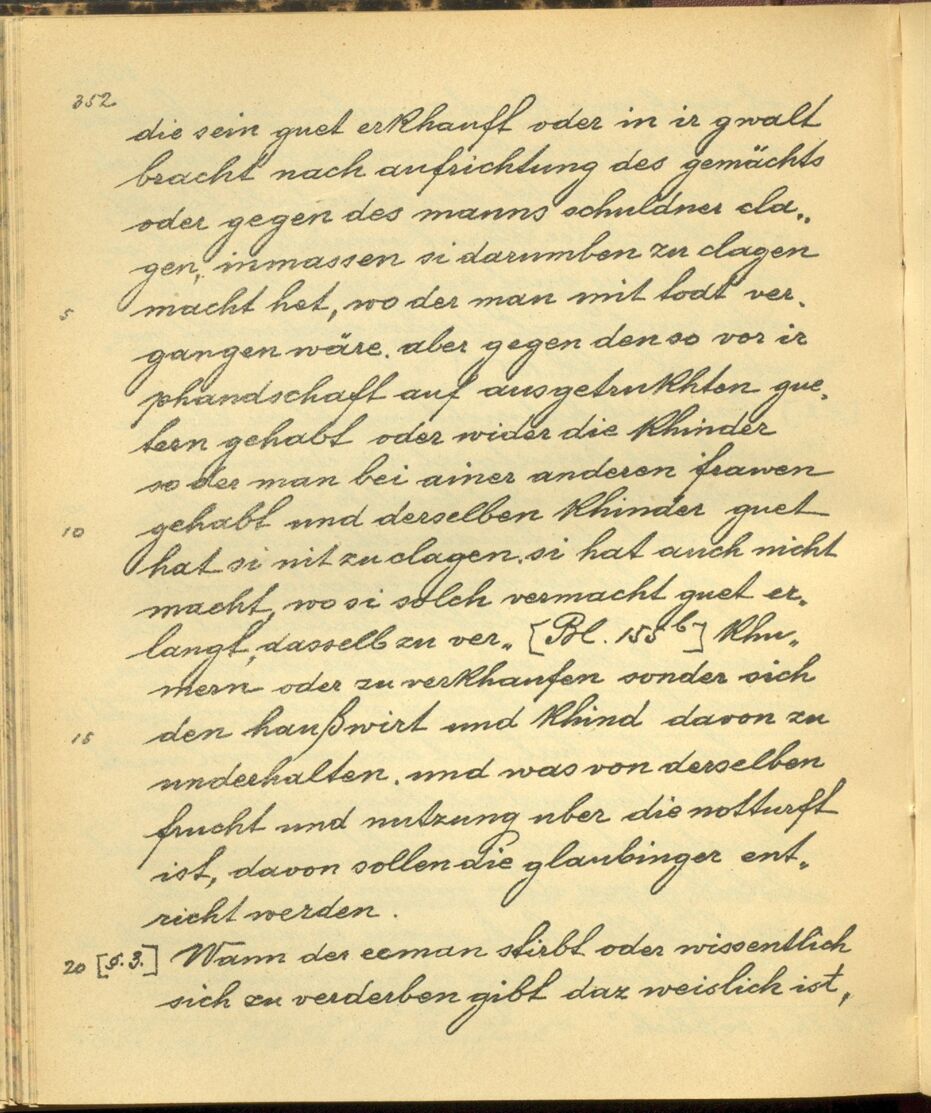 352
die sein guet erkhauft oder in ir gwalt
bracht nach aufrichtung des gemächts
oder gegen des manns schuldner cla„
gen, inmassen si darumben zu clagen
5 macht het, wo der man mit todt ver„
gangen wäre. aber gegen den so vor ir
phandschaft auf ausgetrukhten gue„
tern gehabt oder wider die khinder
so der man bei ainer anderen frawen
10 gehabt und derselben khinder guet
hat si nit zu clagen. si hat auch nicht
macht, wo si solch vermacht guet er„
langt, dasselb zu ver„ [Bl. 155b] khu„
mern oder zu verkhaufen sonder sich
15 den haußwirt und khind davon zu
underhalten. und was von derselben
frucht und nutzung uber die notturft
ist, davon sollen die glaubinger ent„
richt werden.
20 [§. 3.] Wann der eeman stirbt oder wissentlich
sich zu verderben gibt daz weislich ist,